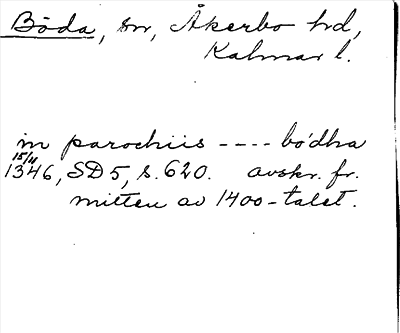 Böda, sn, Åkerbo hd,
Kalmar l.
in parochiis ---- bödha
15/11
1346, SD 5, s. 620. avskr. fr.
mitten av 1400-talet.